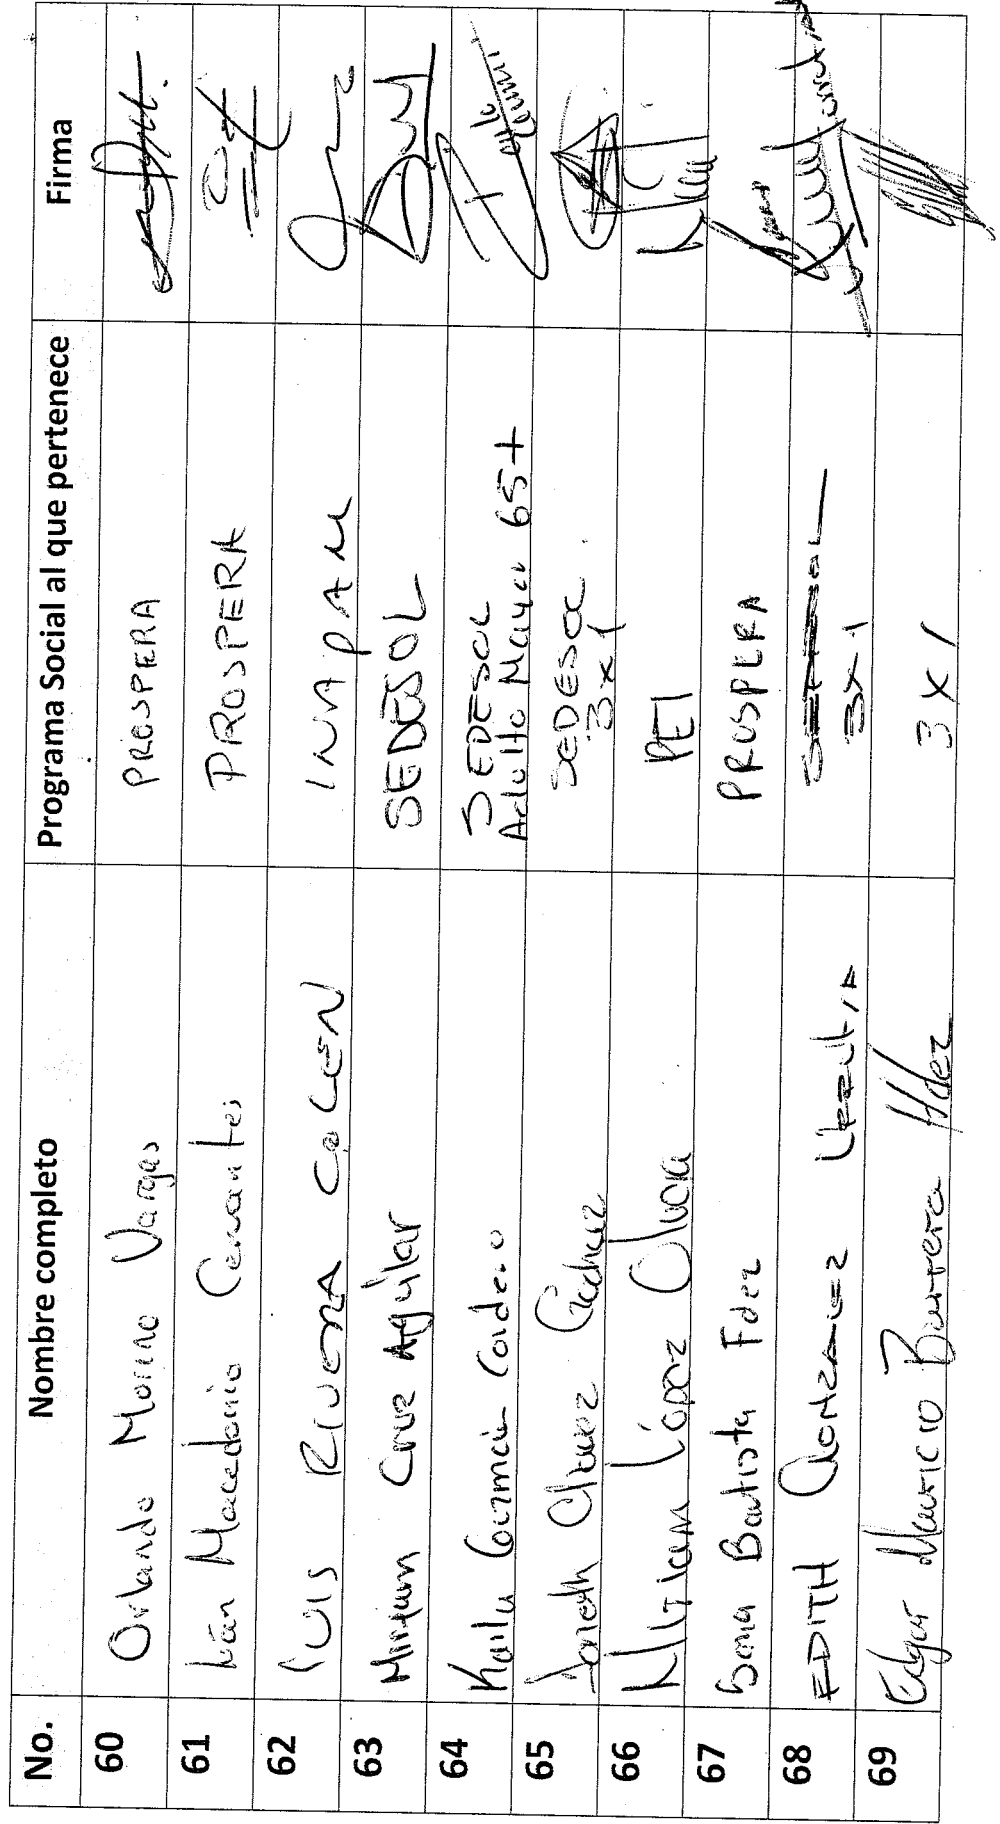 No. Nombre completo Programa Social al que pertenece Firma
60 Orlando Moreno Vargas PROSPERA
61 Iván Macedonio Cervantes PROSPERA
62 LUIS RIVERA COLEN INAPAM
63 Miriam Cruz Aguilar SEDESOL
64 Karla Guzmán Cordero SEDESOL
Adulto Mayor 65+
65 Janeth Chavez SEDESOL
3x1
66 Miriam López Olvera PEI
67 Sonia Bautista Fdez PROSPERA
68 EDITH GONZALEZ Urrutia SEDESOL
3x1
69 Edgar Mauricio Barrera Hdez 3X1